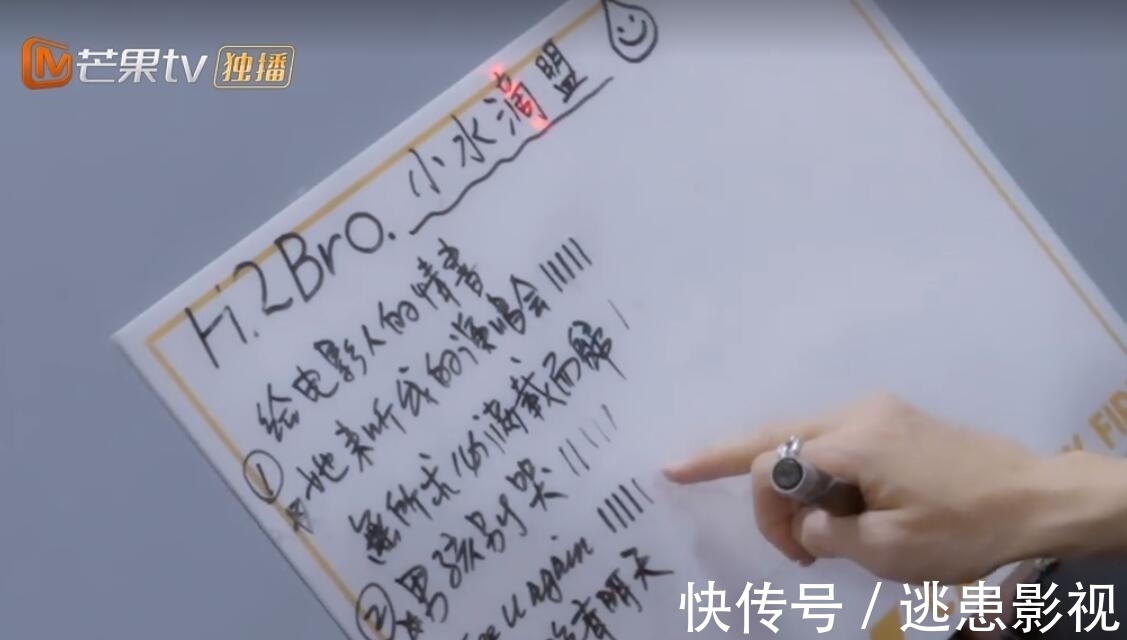 芒果tv 独播
Hi.2Bro.小水滴盟
给电影人的情书
①她来听我的演唱会
無所求必满载而歸
②男孩别哭
See u again
明天
Y FIR
快传号 / 逃患影视